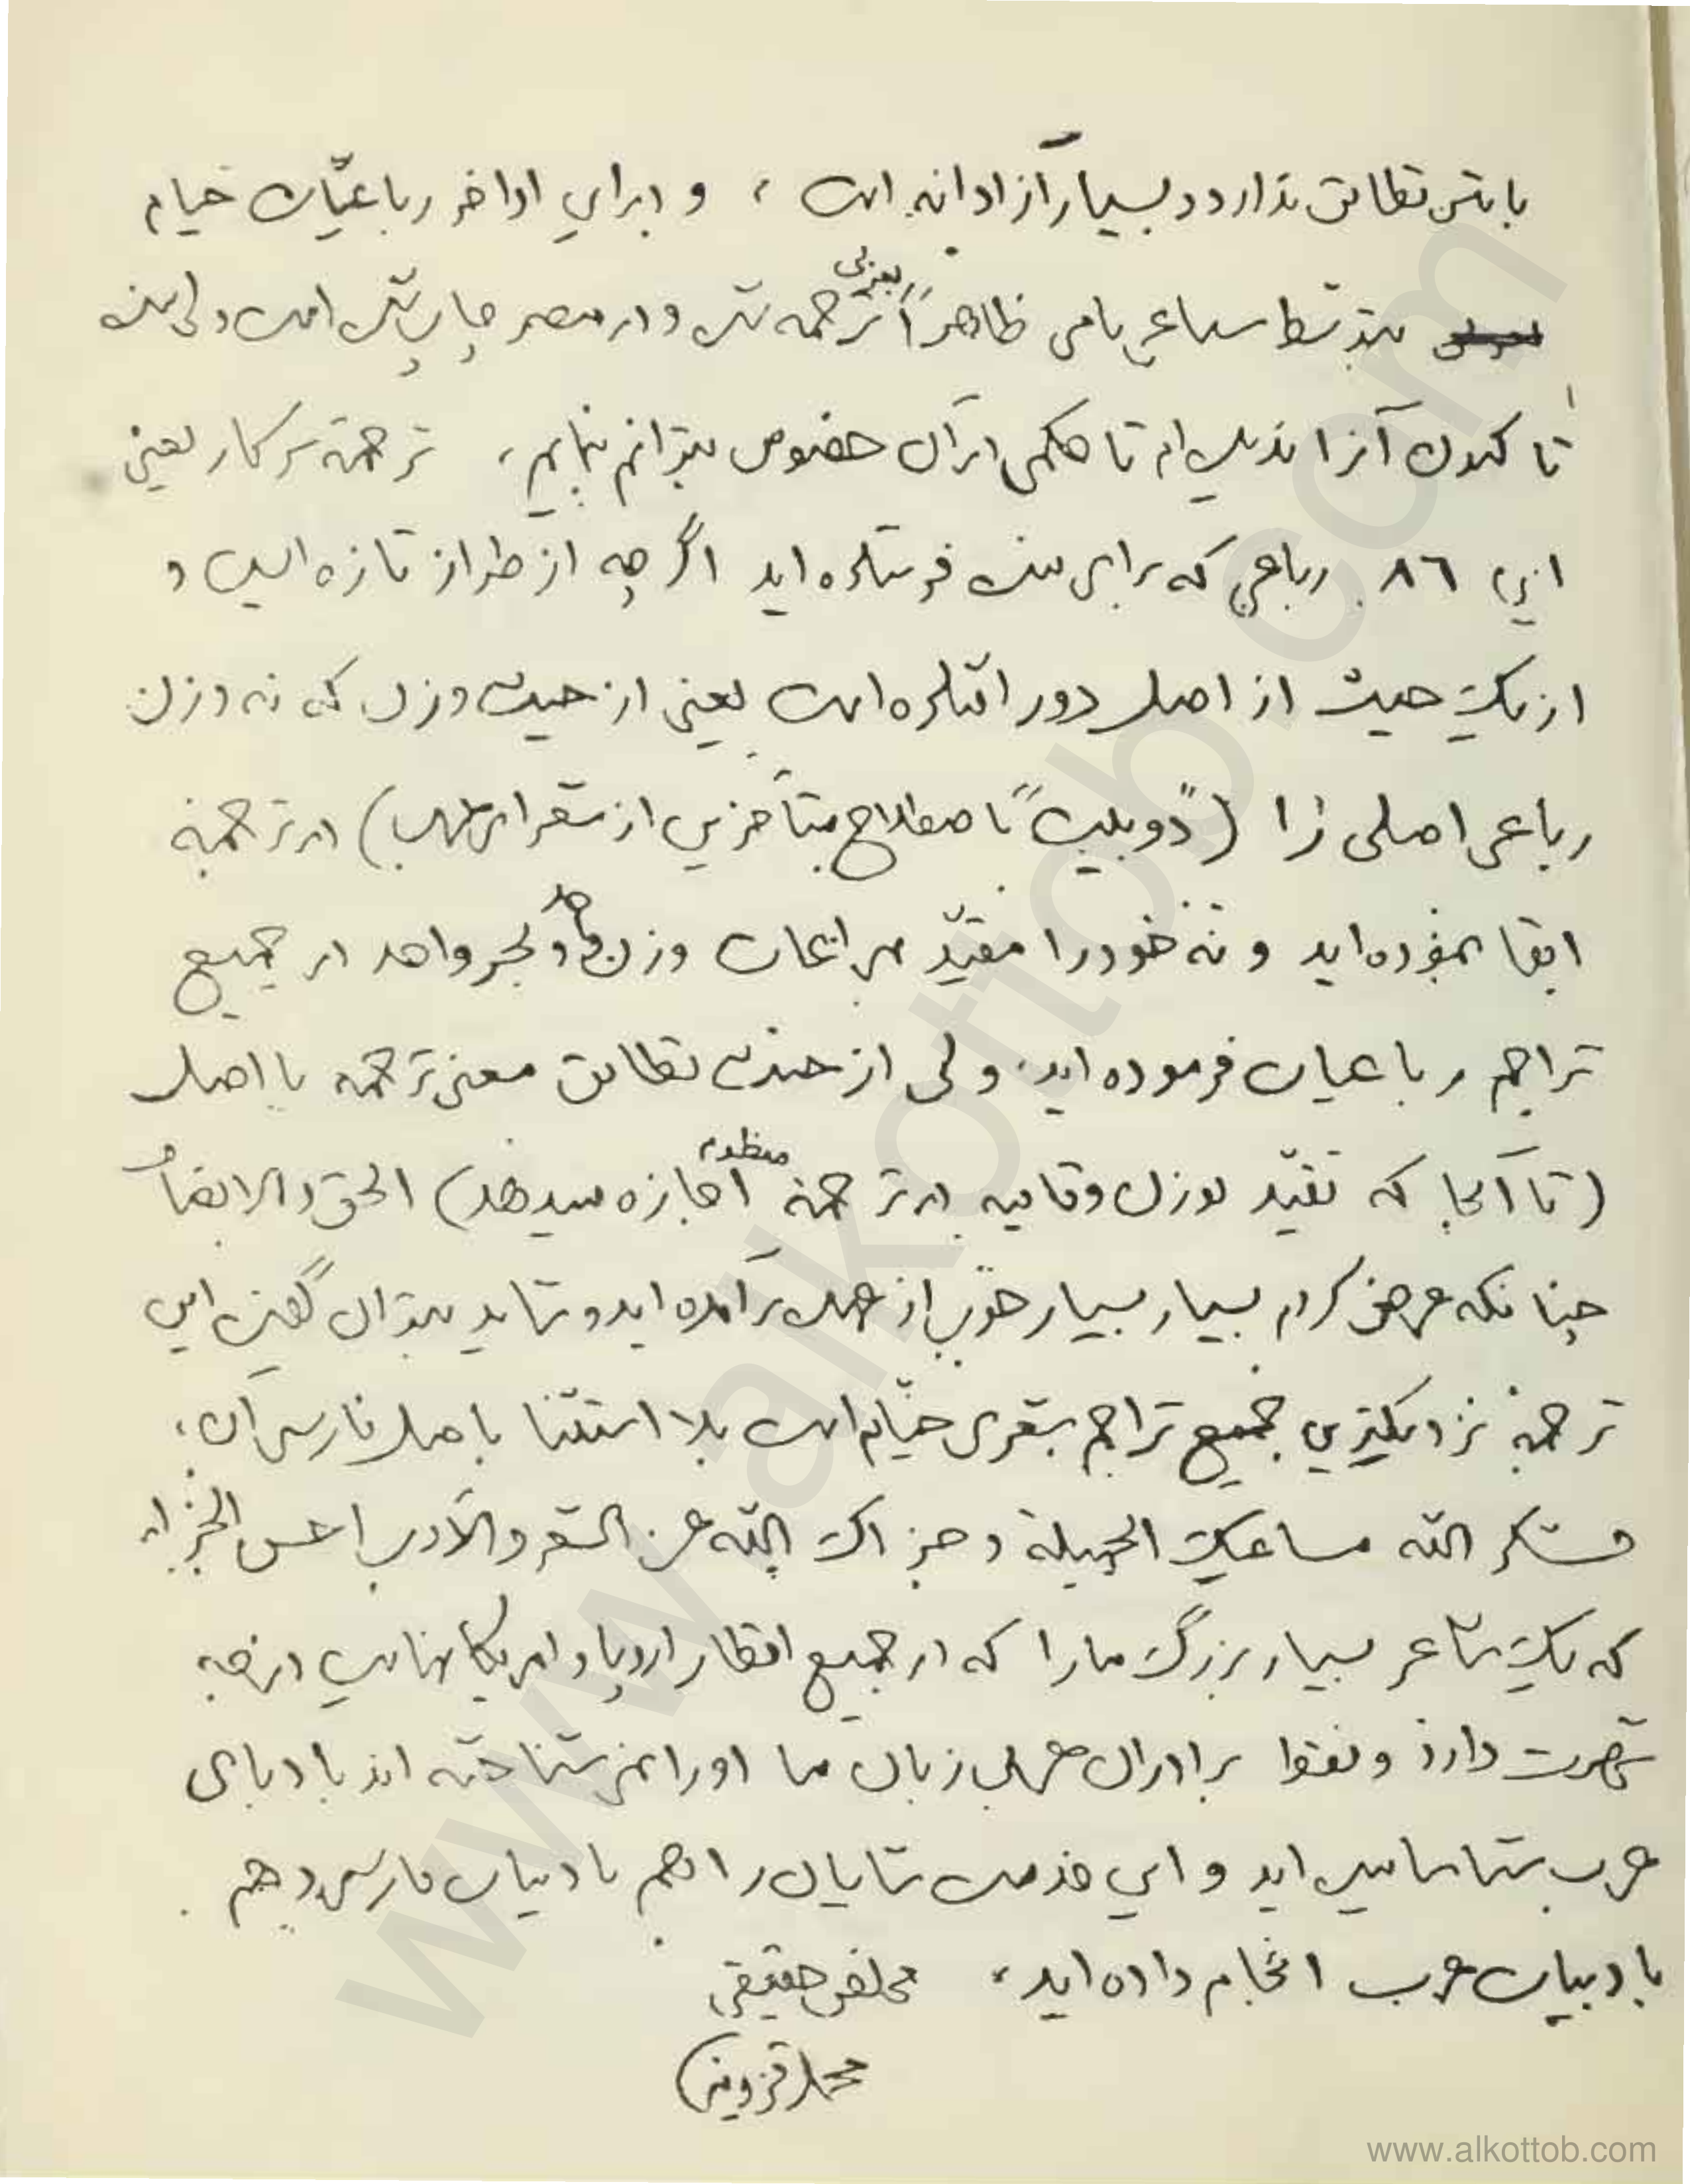 با متن تطابق ندارد و بسیار آزادانه است ، و در این اواخر رباعیّات خیام
بتوسط سباعی نامی ظاهراً بعربی ترجمه شده و در مصر چاپ شده است ولی بنده
تا کنون آنرا ندیده‌ام تا حکمی در آن خصوص بتوانم بنمایم ، ترجمهٔ سرکار یعنی
این ٨٦ رباعی که برای بنده فرستاده اید اگر چه از طراز تازه ایست و
از یک حیث از اصل دور افتاده است یعنی از حیث وزن که نه وزن
رباعی اصلی را («دوبیت» باصطلاح متأخرین از شعرای عرب) در ترجمه
ابقا نموده‌اید و نه خود را مقیّد بمراعات وزن واحد و بحر واحد در جمیع
تراجم رباعیات فرموده اید، ولی از حیث تطابق معنی ترجمه با اصل
(تا آنجا که تقیّد بوزن و قافیه در ترجمهٔ منظوم اجازه میدهد) الحق والانصاف
چنانکه عرض کردم بسیار بسیار خوب از عهده برآمده اید و شاید بتوان گفت این
ترجمه نزدیکترین جمیع تراجم شعری خیّام است بلا استثنا باصل فارسی آن ،
فشکر الله مساعیک الجمیلة و جزاک الله عن الشعر والأدب احسن الجزاء
که یک شاعر بسیار بزرگ ما را که در جمیع اقطار اروپا و امریکا نهایت درجه
شهرت دارد و فقط برادران عرب زبان ما او را نمی شناخته اند بادبای
عرب شناسانیده اید و این خدمت شایان را هم بادبیات فارسی و هم
بادبیات عرب انجام داده اید ، مخلص حقیقی
محمد قزوینی
www.alkottob.com
www.alkottob.com